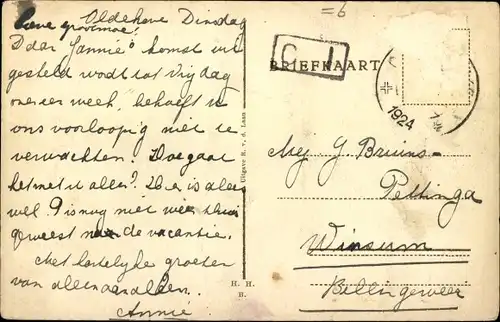 Oldehove Dinsdag
Lieve grootmoe!
Daar Jannie's komst uit
gesteld wordt tot Vrijdag
over een week, behoeft u
ons voorloopig niet te
verwachten. Hoe gaat
het met u allen? Hier is alles
wel. P is nog niet weer thuis
geweest na de vacantie.
Met hartelijke groeten
van allen aan allen.
Annie
=6
BRIEFKAART
1924
Uitgave R. v. d. Laan
H. H.
B.
Mej. G. Bruins-
Pettinga
Winsum
Bellingeweer